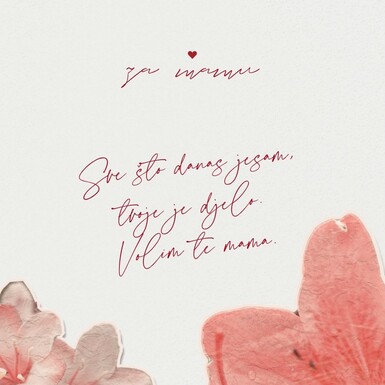 za mamu
Sve što danas jesam,
tvoje je djelo.
Volim te mama.